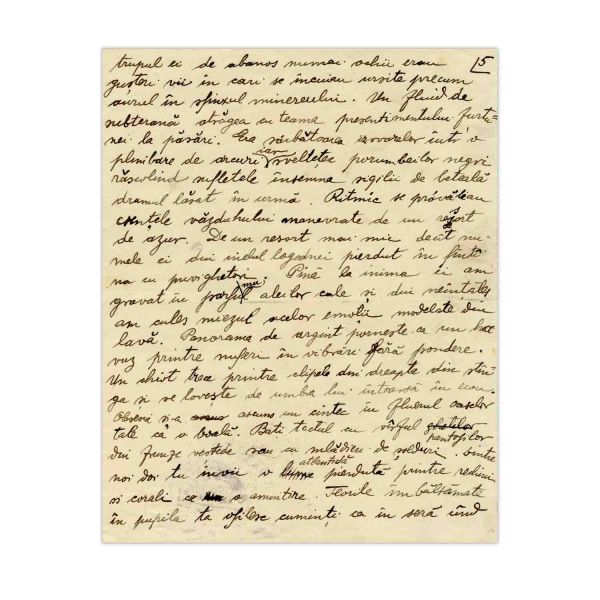 5
trupul ei de abanos numai ochii erau
gușteri vii în cari se încuiau ursite precum
aurul în sfinxul minereului. Un fluid de
subterană atrăgea cu teama presentimentului furtu-
nei la păsări. Era sărbătoarea izvoarelor într'o
plimbare de arcuri iar sveltețea porumbeilor negri
răscolind sufletele însemna sigilii de beteală
drumul lăsat în urmă. Ritmic se prăvăleau
văzduhului manevrate de un resort
de azur. De un resort mai mic decât nu-
mele ei din inelul logodnei pierdut în fântâ
na cu privighetori. Până la inima ei am
gravat în parful aleilor cale și din neînțeles
am cules miezul acelor emoții modelate din
lavă. Panorama de argint pornește ca un
printre nuferi în vibrări fără pondere.
Un chiot trece printre clipele din dreapta din stân
ga și se lovește de umbra lui întoarsă în ecou.
Obscen și-a ascuns un cântec în fluerul oaselor
tale ca o boală. Bați tactul cu vârful pantofilor
din frunze vestede sau cu mlădieri de șolduri. Între
noi doi tu învii o atlantidă pierdută printre
și corali ca o amintire. Florile îmbălsămate
în pupila ta ofilesc cuminți ca în seră când